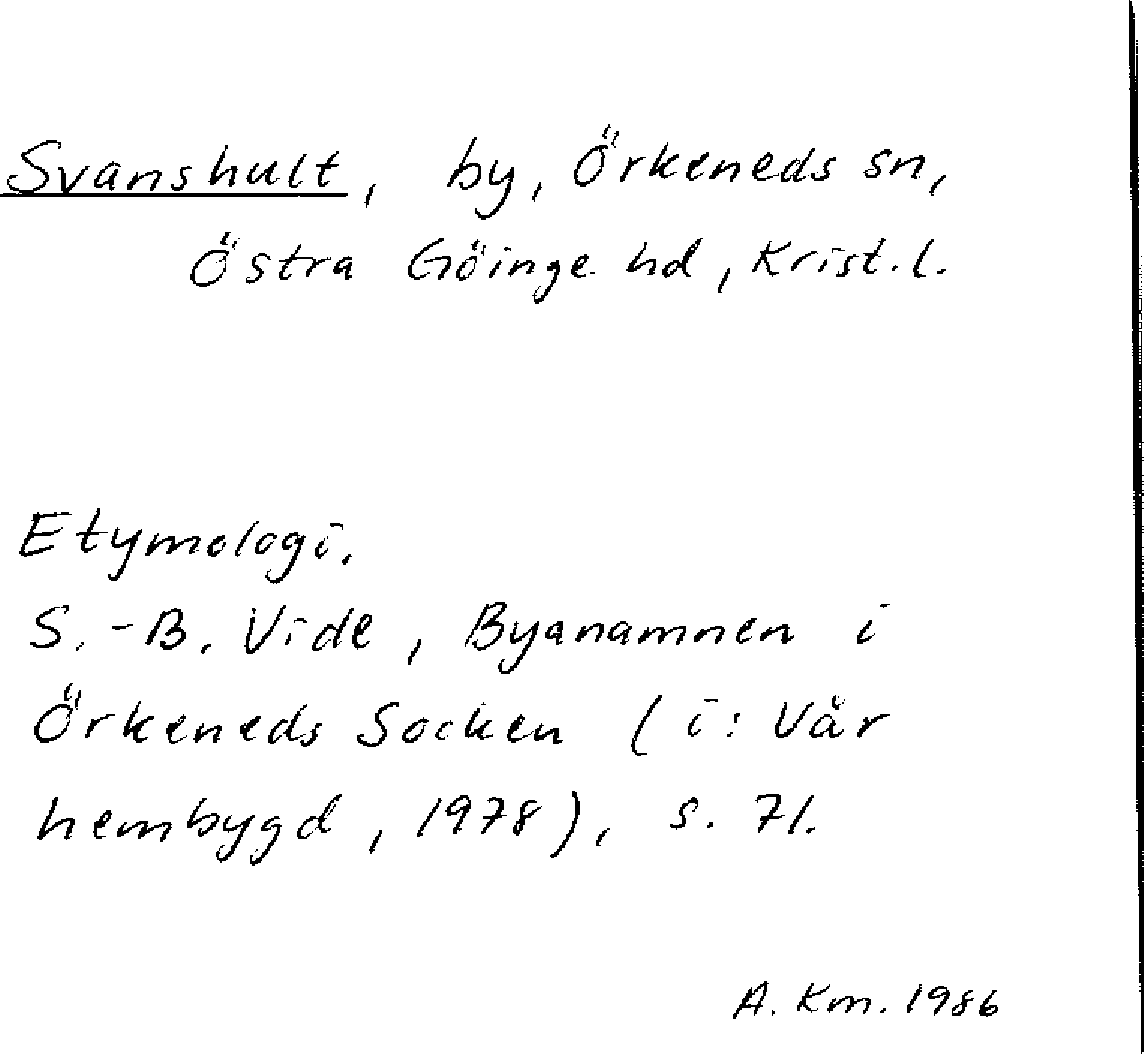 Svanshult, by, Örkeneds sn,
Östra Göinge hd, Krist. l.
Etymologi.
S.-B. Vide, Byanamnen i
Örkeneds Socken (i: Vår
hembygd, 1978), s. 71.
A. Km. 1986